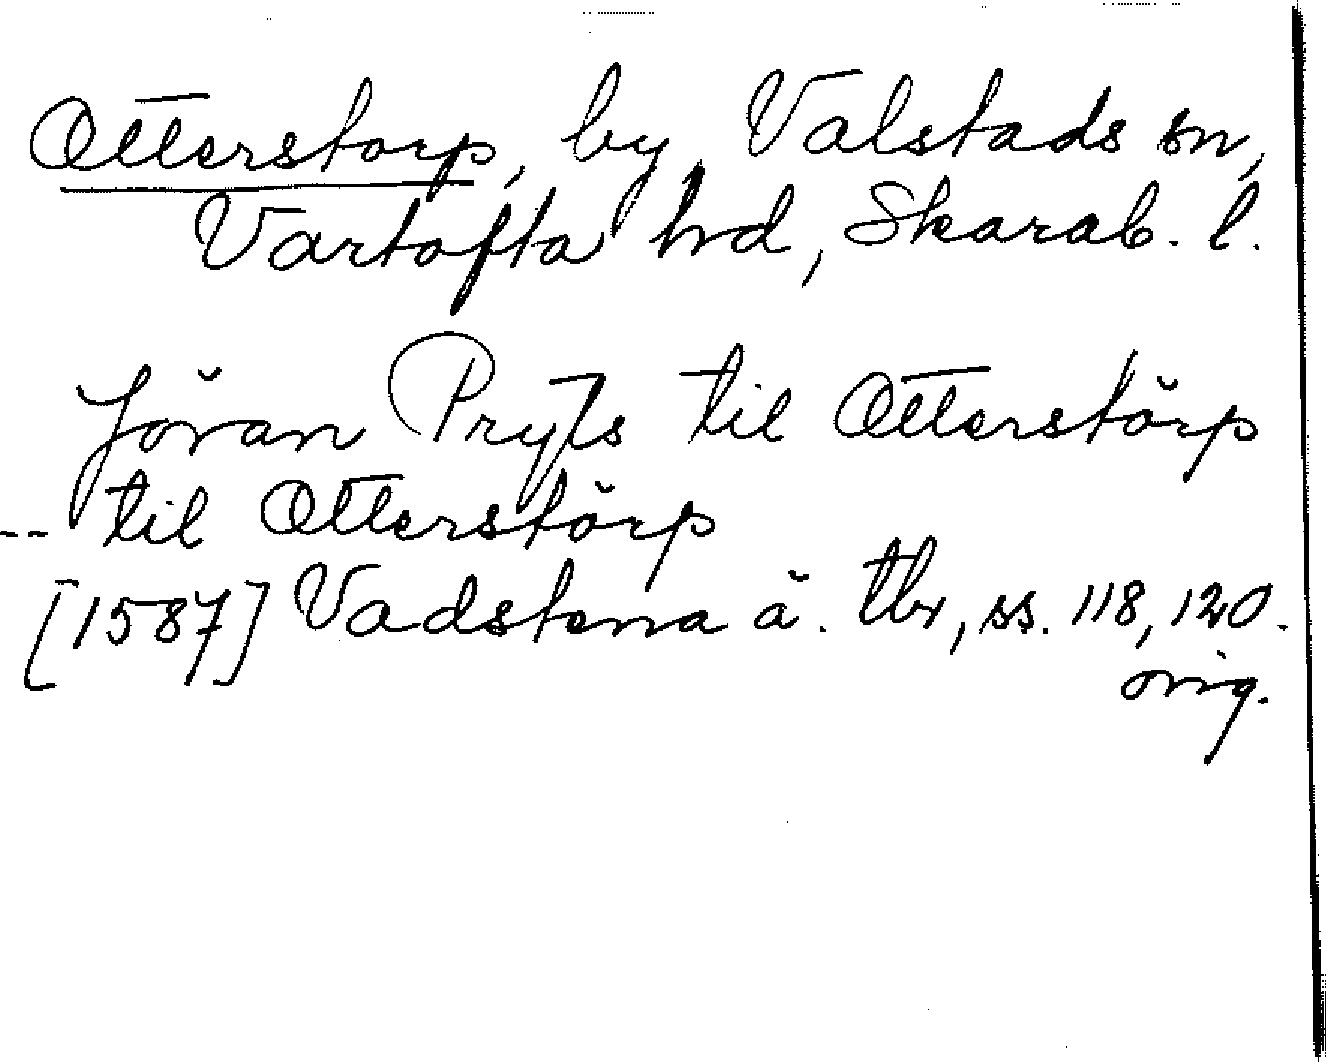 Otterstorp, by, Valstads sn,
Vartofta hrd, Skarab. l.
Jöran Pryts til Otterstörp
-- til Otterstörp
[1587] Vadstena ä. tbr, ss. 118, 120.
orig.